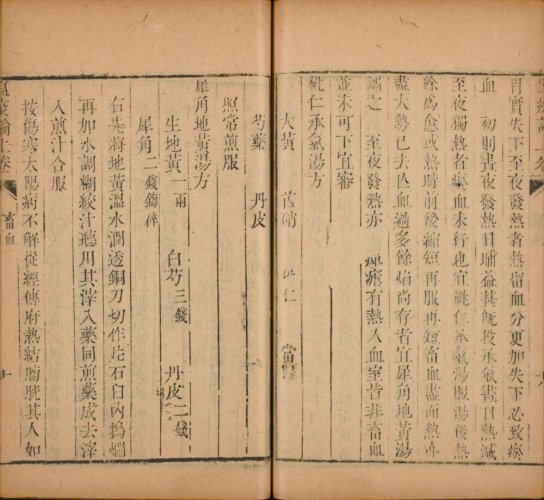 胃實失下至夜發熱者熱留血分更加失下必致瘀
血 初則晝夜發熱日晡益甚旣投承氣晝日熱減
至夜獨熱者瘀血未行也宜桃仁承氣湯服湯後熱
除為愈或熱時前後縮短再服再短蓄血盡而熱亦
盡大勢已去亡血過多餘焰尚存者宜犀角地黃湯
調之 至夜發熱亦 瘧有熱入血室皆非蓄血
並未可下宜審
桃仁承氣湯方
大黃 芒硝 桃仁 當歸
芍藥 丹皮
照常煎服
犀角地黃湯方
生地黃一兩 白芍三錢 丹皮二錢
犀角二錢鎊碎
右先將地黃溫水潤透銅刀切作片石臼內搗爛
再加水調糊絞汁聽用其滓入藥同煎藥成去滓
入煎汁合服
按傷寒太陽病不解從經傳府熱結膀胱其人如
瘟疫論上卷
蓄血